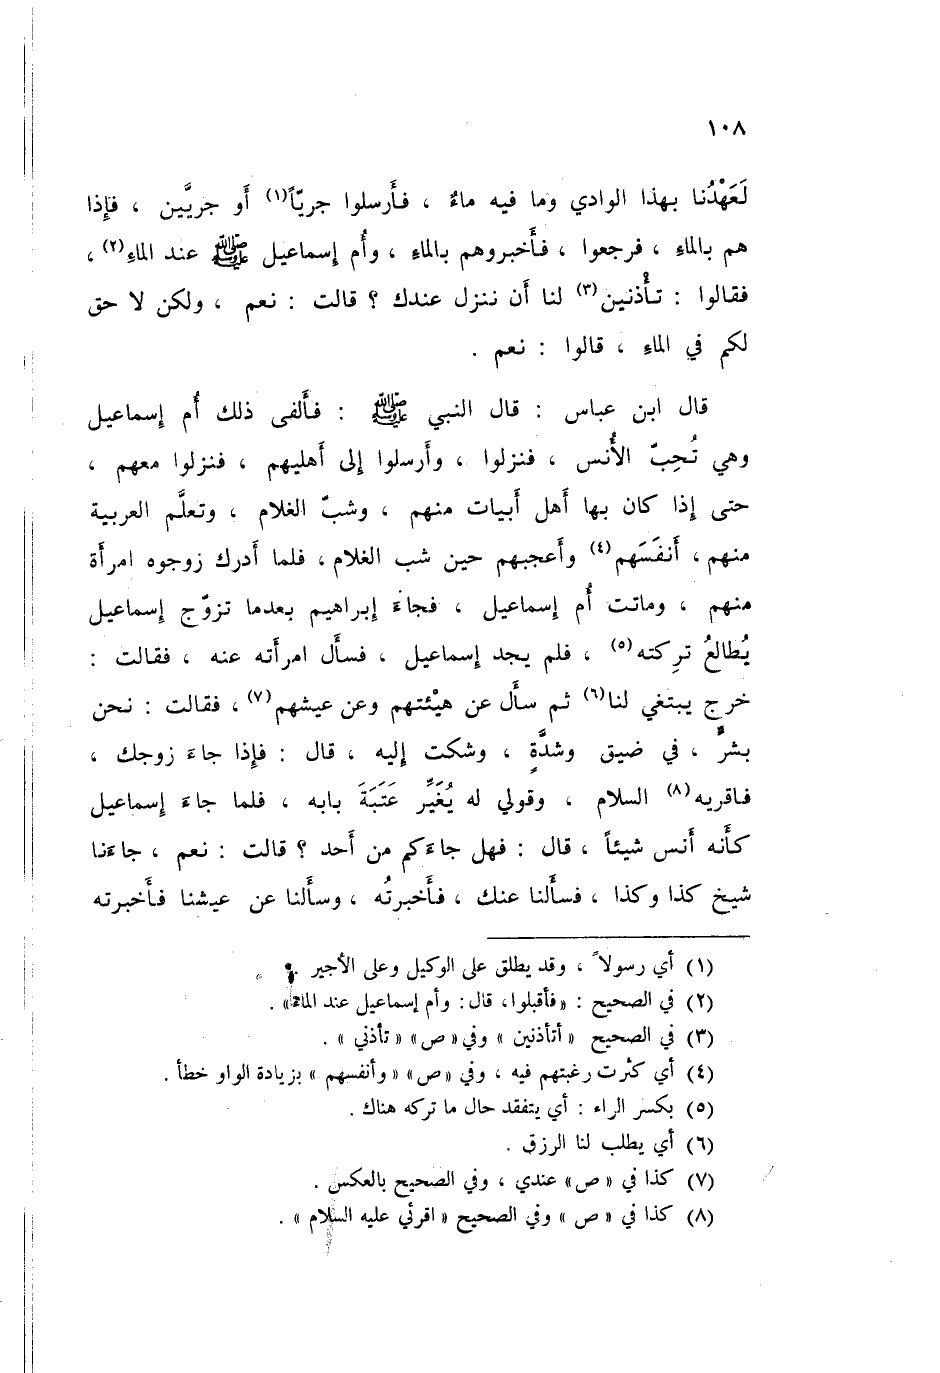 ١٠٨
لَعَهْدُنا بهذا الوادي وما فيه ماءٌ ، فأَرسلوا جريّاً(١) أَو جريَّين ، فإِذا
هم بالماءِ ، فرجعوا ، فأَخبروهم بالماءِ ، وأُم إِسماعيل ﷺ عند الماءِ(٢) ،
فقالوا : تأْذنين(٣) لنا أَن ننزل عندك ؟ قالت : نعم ، ولكن لا حق
لكم في الماءِ ، قالوا : نعم .
قال ابن عباس : قال النبي ﷺ : فأَلفى ذلك أُم إِسماعيل
وهي تُحِبّ الأُنس ، فنزلوا ، وأَرسلوا إِلى أَهليهم ، فنزلوا معهم ،
حتى إِذا كان بها أَهل أَبيات منهم ، وشبّ الغلام ، وتعلَّم العربية
منهم ، أَنفَسَهم(٤) وأَعجبهم حين شب الغلام ، فلما أَدرك زوجوه امرأَة
منهم ، وماتت أُم إِسماعيل ، فجاءَ إِبراهيم بعدما تزوّج إِسماعيل
يُطالعُ ترِكته(٥) ، فلم يجد إِسماعيل ، فسأَل امرأَته عنه ، فقالت :
خرج يبتغي لنا(٦) ثم سأَل عن هيْئتهم وعن عيشهم(٧) ، فقالت : نحن
بشرٍّ ، في ضيق وشدَّةٍ ، وشكت إِليه ، قال : فإِذا جاءَ زوجك ،
فاقريه(٨) السلام ، وقولي له يُغَيِّر عَتَبَةَ بابه ، فلما جاءَ إِسماعيل
كأَنه أَنس شيئاً ، قال : فهل جاءَكم من أَحد ؟ قالت : نعم ، جاءَنا
شيخ كذا وكذا ، فسأَلنا عنك ، فأَخبرتُه ، وسأَلنا عن عيشنا فأَخبرته
(١) أي رسولاً ، وقد يطلق على الوكيل وعلى الأجير .
(٢) في الصحيح : «فأقبلوا، قال: وأم إسماعيل عند الماء» .
(٣) في الصحيح « أتأذنين » وفي« ص» « تأذني » .
(٤) أي كثرت رغبتهم فيه ، وفي «ص» «وأنفسهم » بزيادة الواو خطأ .
(٥) بكسر الراء : أي يتفقد حال ما تركه هناك .
(٦) أي يطلب لنا الرزق .
(٧) كذا في « ص» عندي ، وفي الصحيح بالعكس .
(٨) كذا في « ص » وفي الصحيح « اقرئي عليه السلام » .